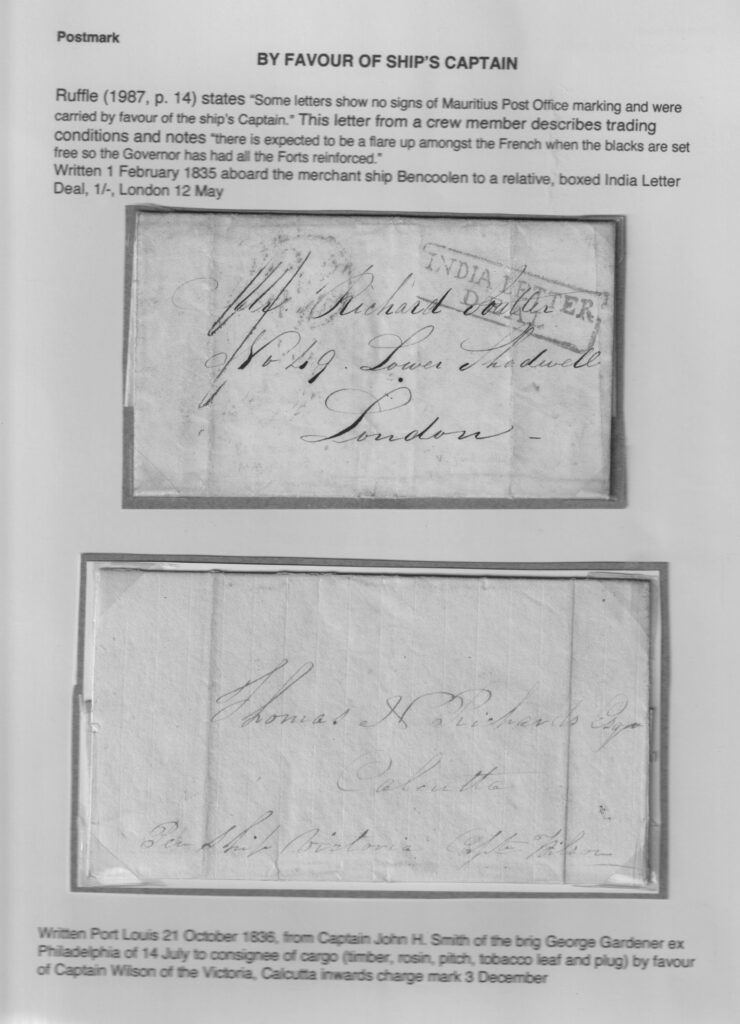 Postmark
BY FAVOUR OF SHIP'S CAPTAIN
Ruffle (1987, p. 14) states "Some letters show no signs of Mauritius Post Office marking and were
carried by favour of the ship's Captain." This letter from a crew member describes trading
conditions and notes "there is expected to be a flare up amongst the French when the blacks are set
free so the Governor has had all the Forts reinforced."
Written 1 February 1835 aboard the merchant ship Bencoolen to a relative, boxed India Letter
Deal, 1/-, London 12 May
INDIA LETTER
DEAL
Mr. Richard
No 49. Lower Shadwell
London
Thomas N Richards Esqr
Calcutta
Per Ship Victoria Capt Wilson
Written Port Louis 21 October 1836, from Captain John H. Smith of the brig George Gardener ex
Philadelphia of 14 July to consignee of cargo (timber, rosin, pitch, tobacco leaf and plug) by favour
of Captain Wilson of the Victoria, Calcutta inwards charge mark 3 December